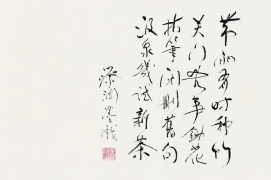 带雨有时种竹
关门无事锄花
拈笔闲删旧句
汲泉几试新茶